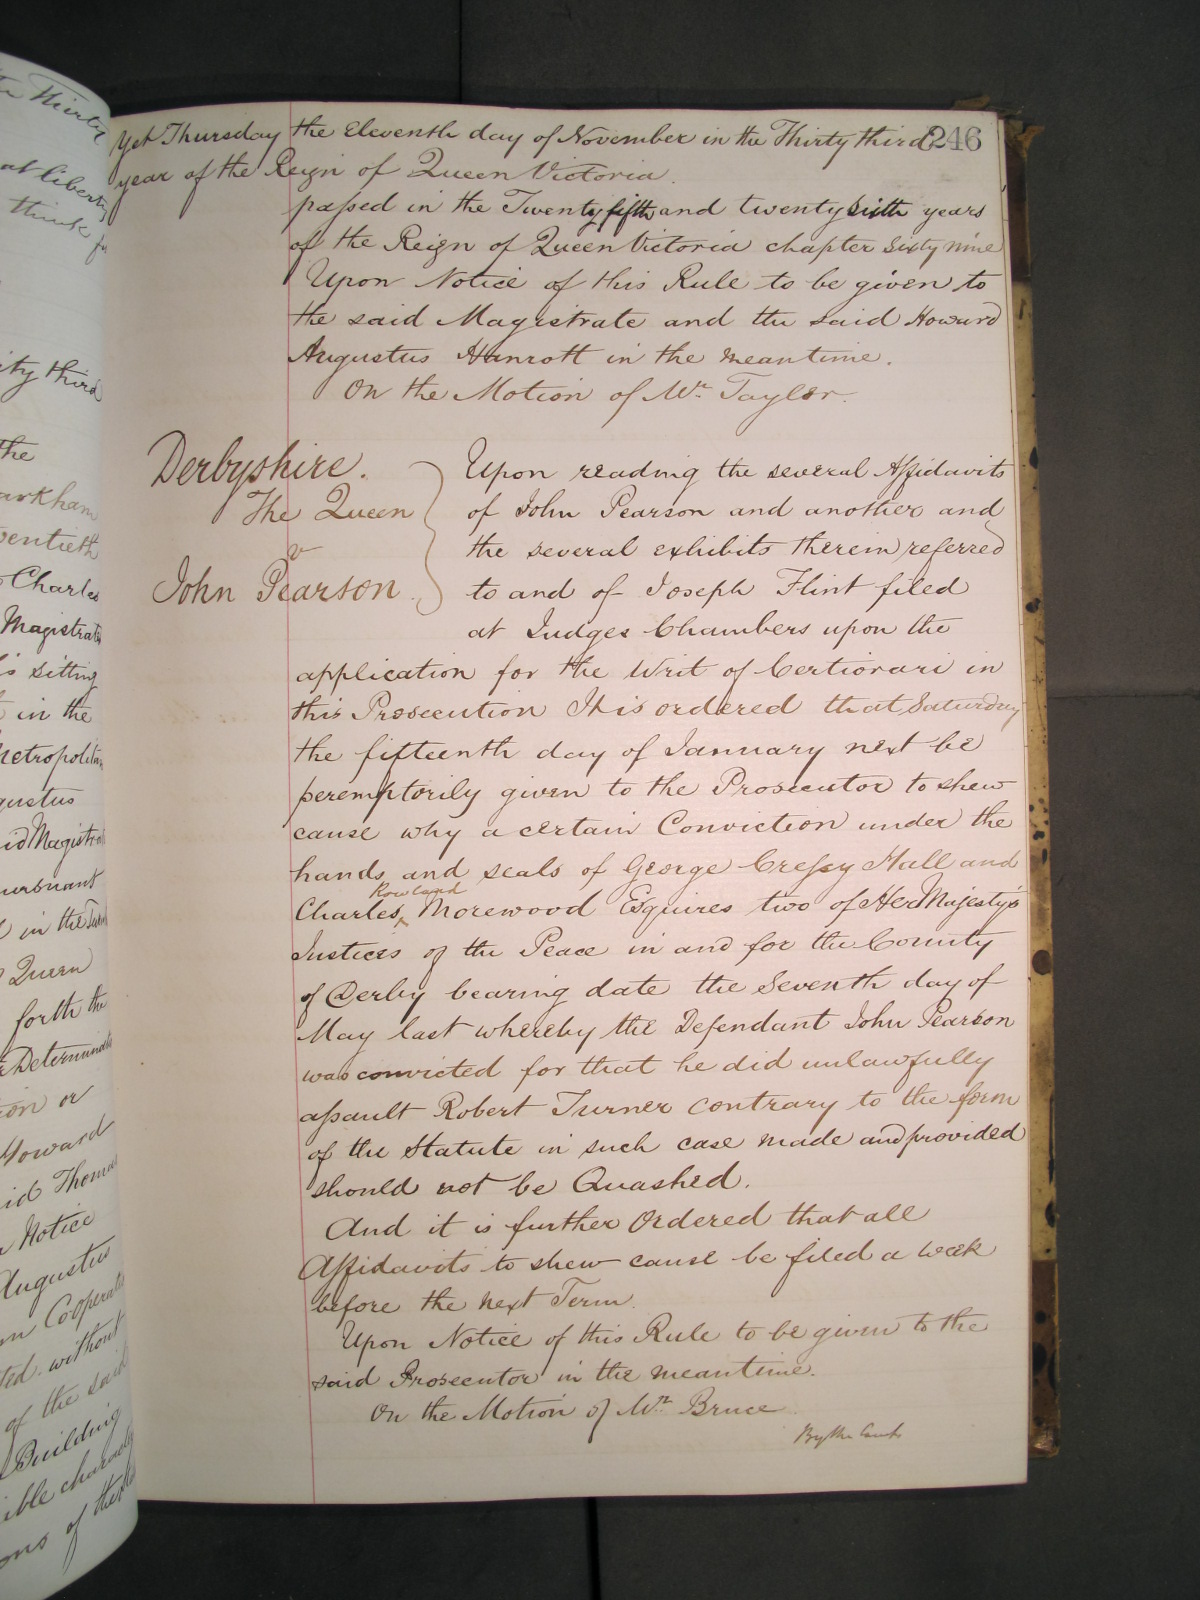 Yet Thursday the Eleventh day of November in the Thirty third 246
year of the Reign of Queen Victoria.
passed in the Twenty fifth and twenty sixth years
of the Reign of Queen Victoria chapter sixty nine
Upon Notice of this Rule to be given to
the said Magistrate and the said Howard
Augustus Hanrott in the meantime.
On the Motion of Mr. Taylor.
Derbyshire.
The Queen
v
John Pearson.
Upon reading the several Affidavits
of John Pearson and another and
the several exhibits therein referred
to and of Joseph Flint filed
at Judges Chambers upon the
application for the Writ of Certiorari in
this Prosecution It is ordered that Saturday
the fifteenth day of January next be
peremptorily given to the Prosecutor to shew
cause why a certain Conviction under the
hands and seals of George Cressy Hall and
Rowland
Charles ‸ Morewood Esquires two of Her Majesty's
Justices of the Peace in and for the County
of Derby bearing date the Seventh day of
May last whereby the Defendant John Pearson
was convicted for that he did unlawfully
assault Robert Turner contrary to the form
of the Statute in such case made and provided
should not be Quashed.
And it is further Ordered that all
Affidavits to shew cause be filed a week
before the next Term.
Upon Notice of this Rule to be given to the
said Prosecutor in the meantime.
On the Motion of Mr. Bruce
By the Court
the Thirty
at liberty
think
ity third
the
arkham
wentieth
Charles
Magistrate
sitting
in the
Metropolitan
gustus
id Magistrate
ursuant
in the
Queen
forth the
ion or
Howard
id Thomas
Notice
Augustus
without
of the said
Building